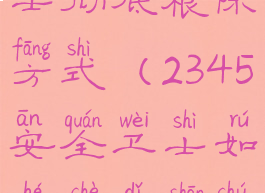 fāng shì
方式(2345
ān quán wèi shì rú
安全卫士如
hé chè dǐ shān chú